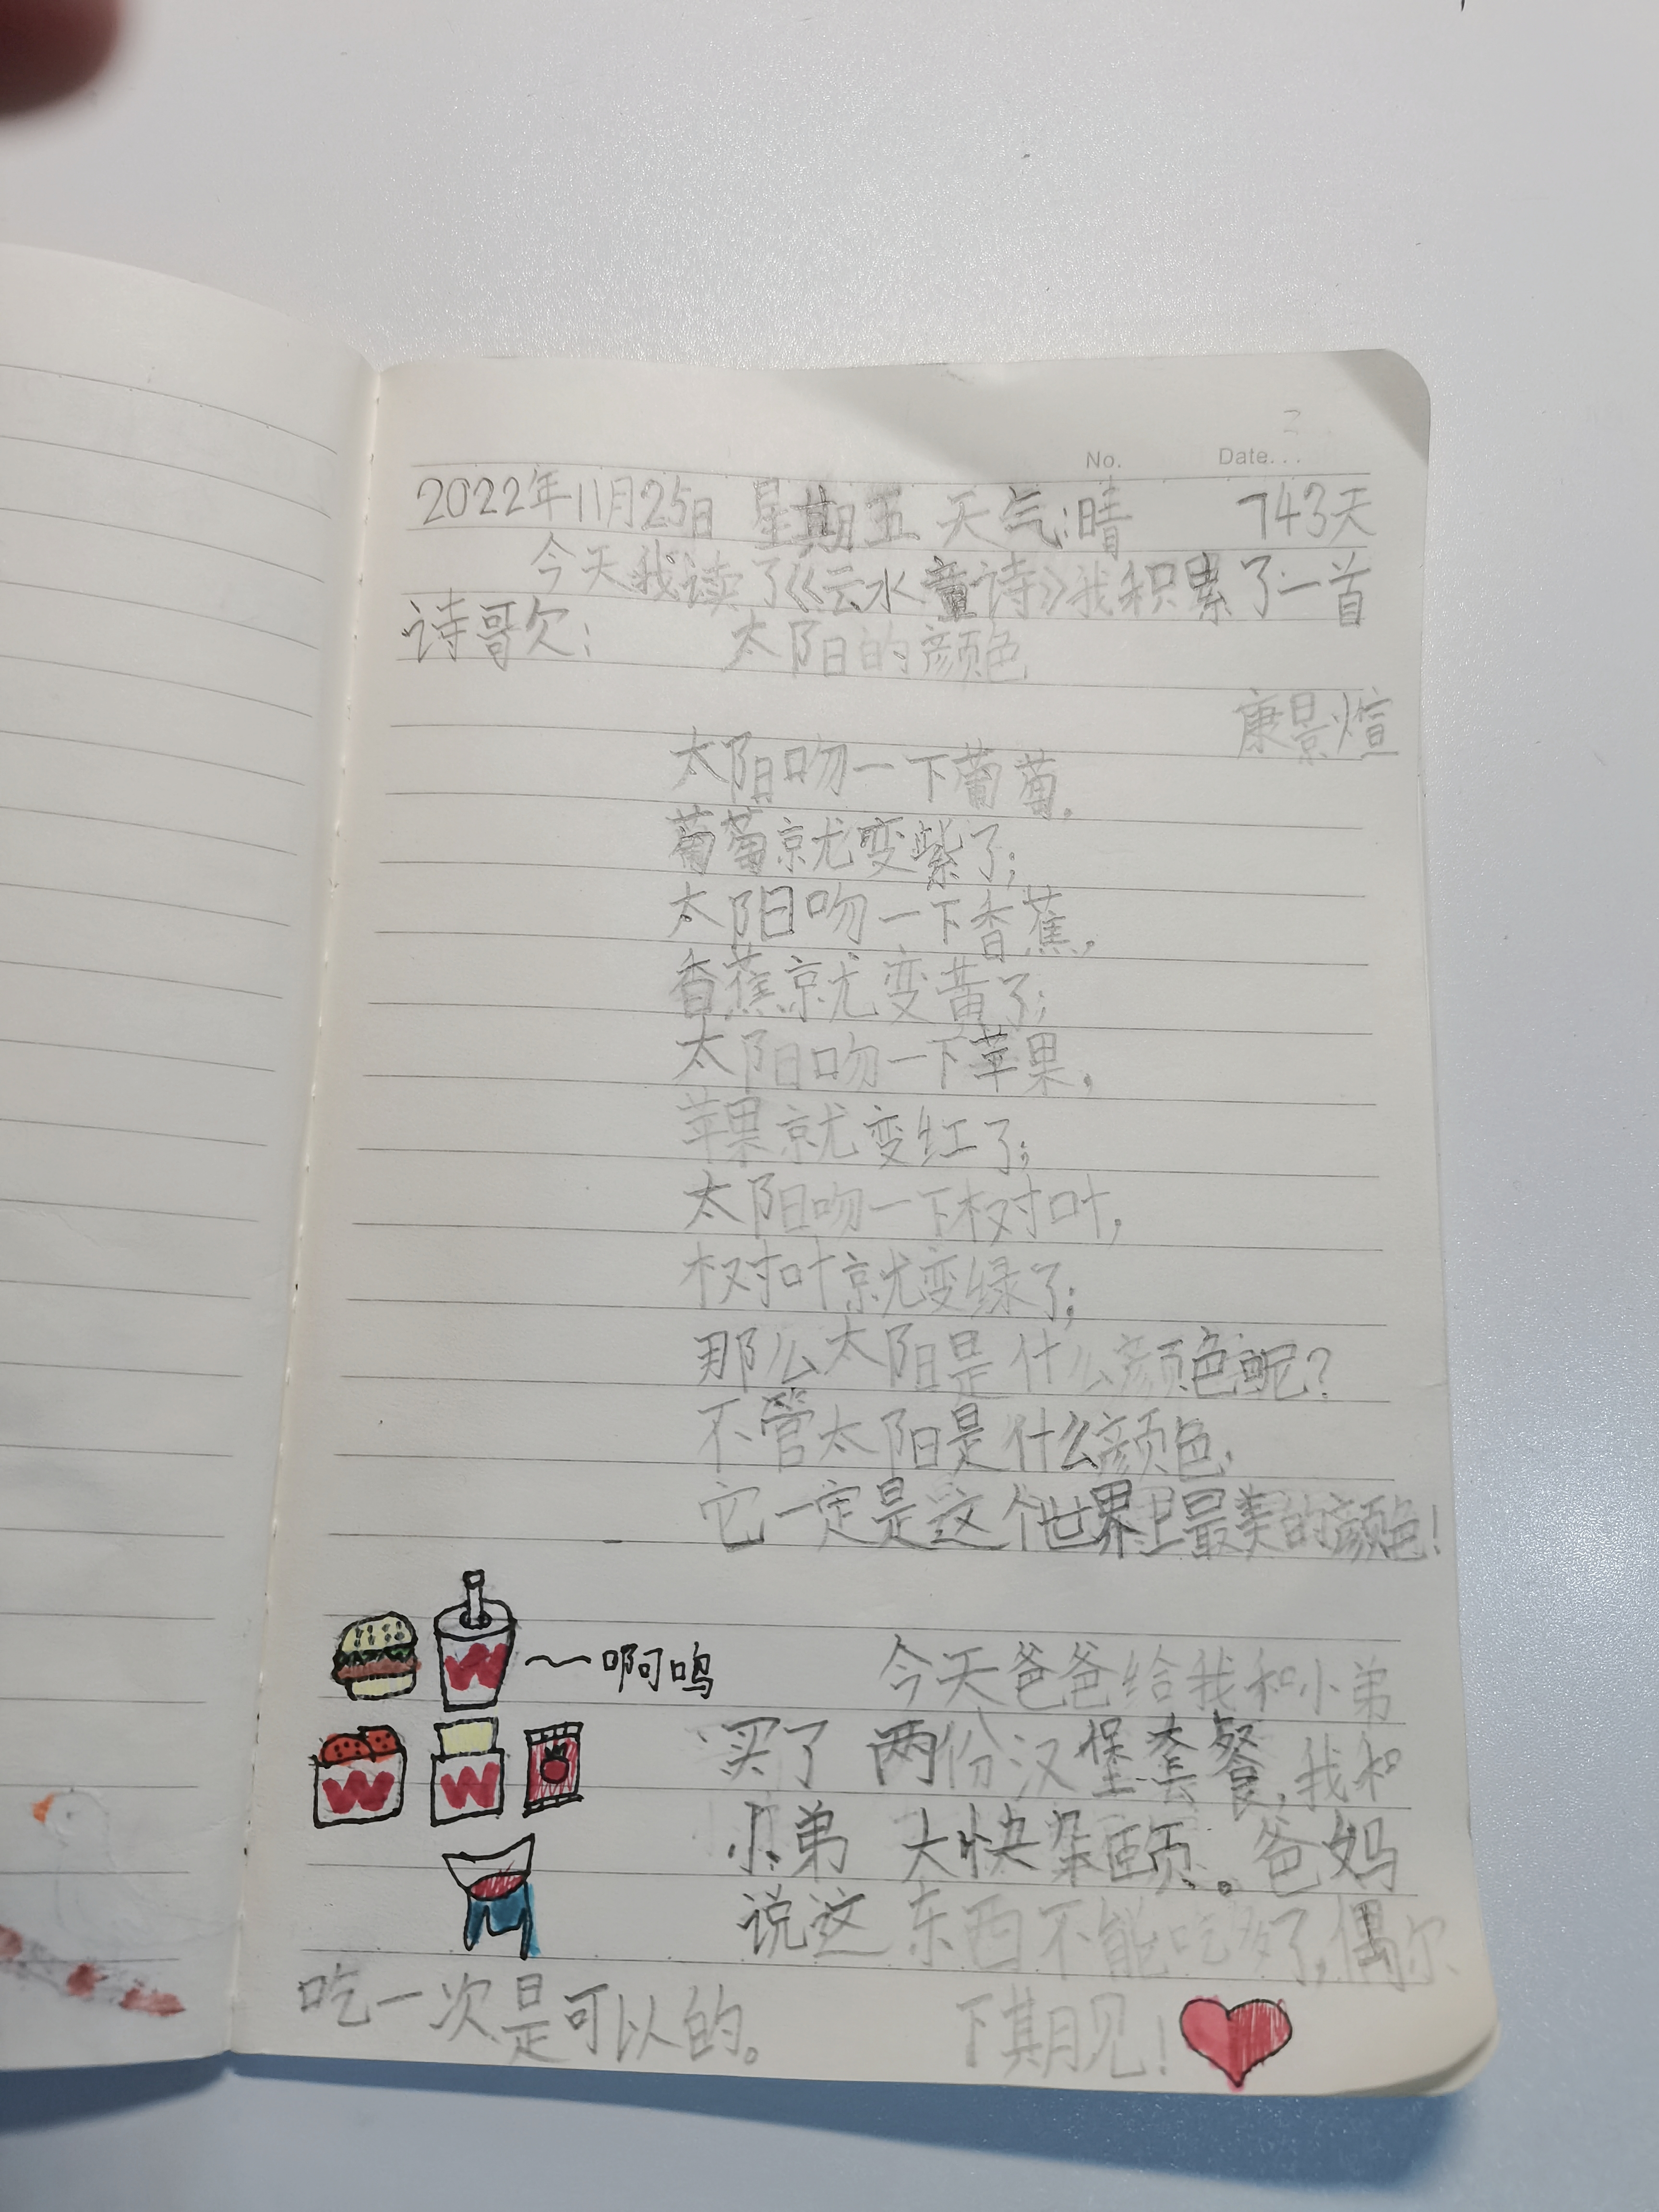 No. Date...
2022年11月25日 星期五 天气:晴 743天
今天我读了《云水童诗》我积累了一首
诗歌:
太阳的颜色
康景煊
太阳吻一下葡萄,
葡萄就变紫了;
太阳吻一下香蕉,
香蕉就变黄了;
太阳吻一下苹果,
苹果就变红了;
太阳吻一下树叶,
树叶就变绿了;
那么太阳是什么颜色呢?
不管太阳是什么颜色,
它一定是这个世界上最美的颜色!
W ~啊呜
W W
今天爸爸给我和小弟
买了两份汉堡套餐,我和
小弟大快朵颐。爸妈
说这东西不能吃多了,偶尔
吃一次是可以的。 下期见!